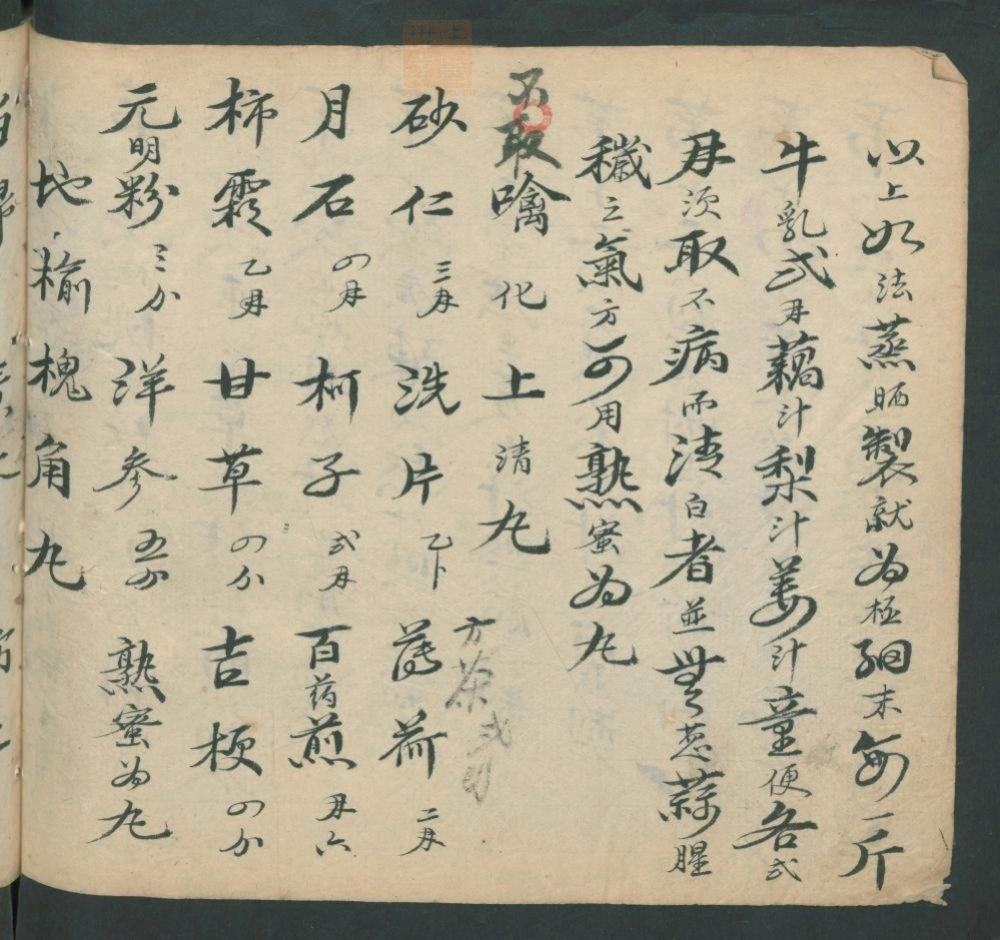 以上如法蒸晒製就為極細末每一斤
牛乳弍両藕汁梨汁姜汁童便各弍
両須取不病而清白者並無葱蒜腥
穢之氣方可用熟蜜為丸
噙化上清丸
方茶弍
砂仁三両洗片乙卜薄荷二両
月石四両柯子弍両百药煎両六
柿霜乙両甘草四分吉梗四分
元明粉三分洋参五分熟蜜為丸
地榆槐角丸